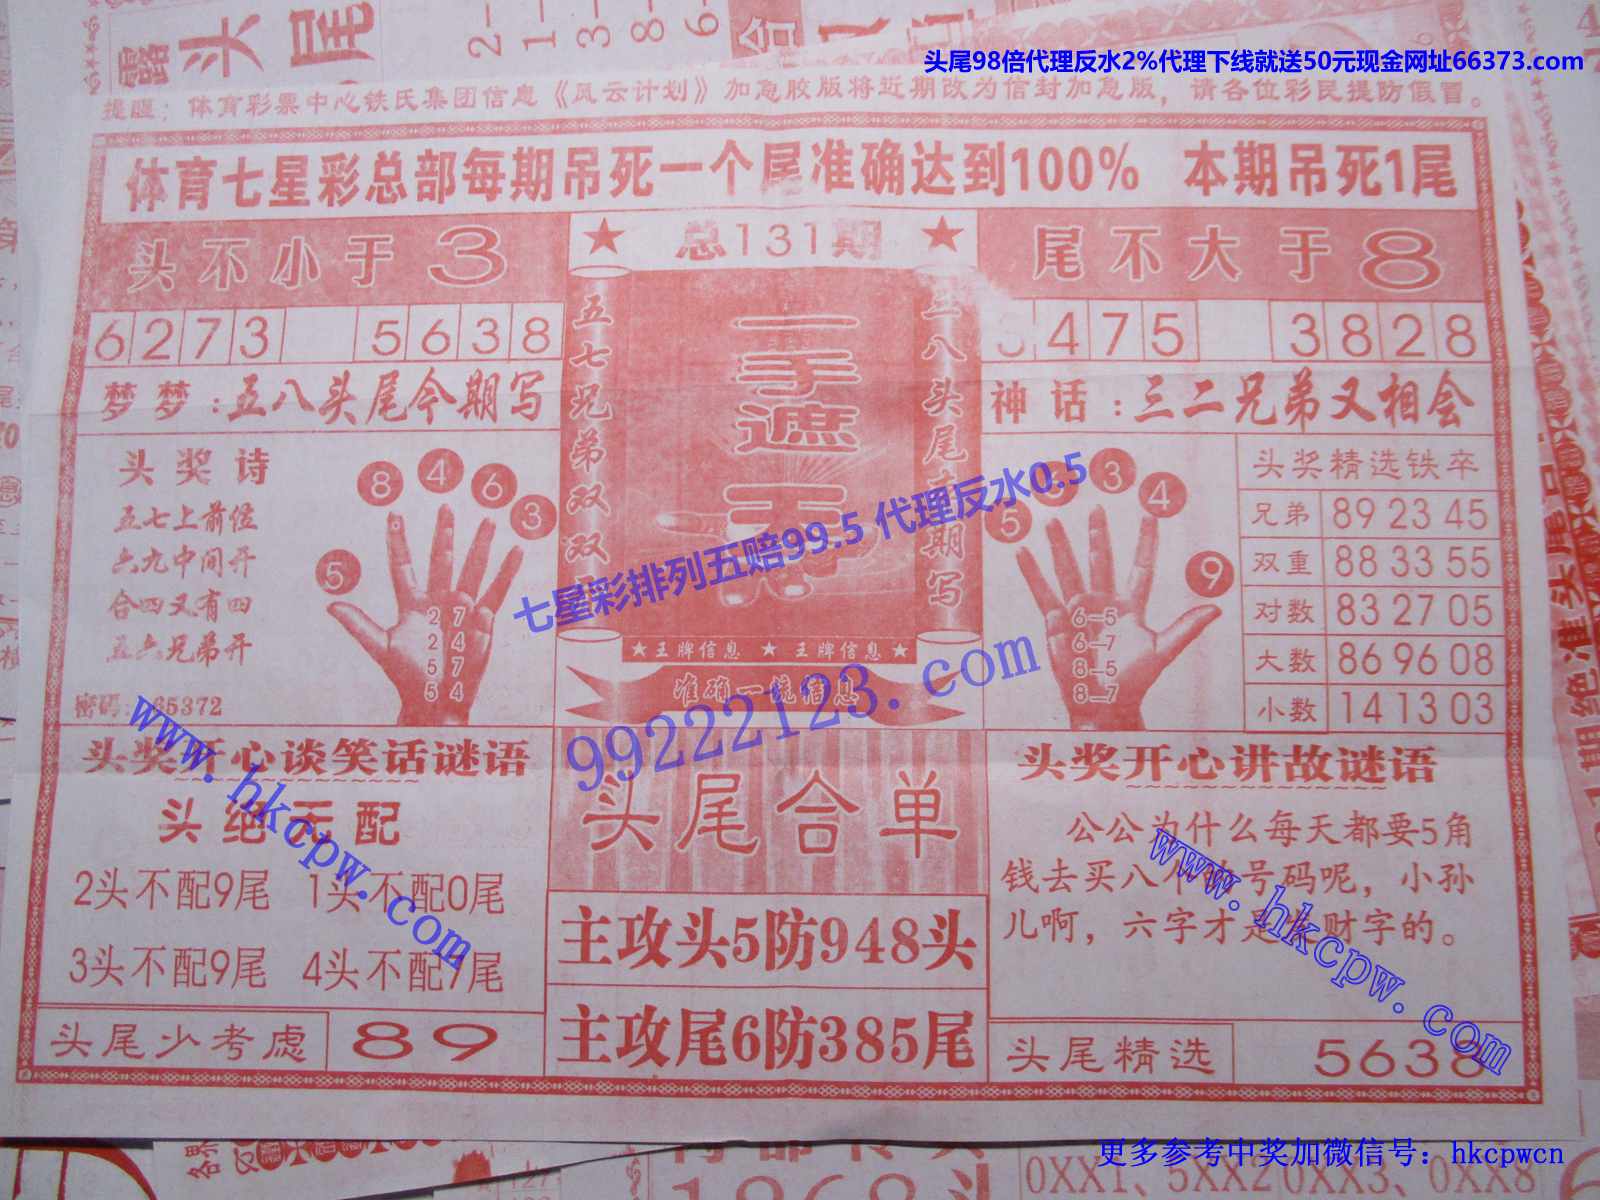 头尾98倍代理反水2%代理下线就送50元现金网址66373.com
提醒：体育彩票中心铁氏集团信息《风云计划》加急胶版将近期改为信封加急版，请各位彩民提防假冒。
体育七星彩总部每期吊死一个尾准确达到100% 本期吊死1尾
头不小于3
总131期
尾不大于8
6273 5638
475 3828
梦梦：五八头尾今期写
神话：三二兄弟又相会
五七兄弟双双
一手遮天
八头尾
期写
头奖诗
五七上前位
六九中间开
合四又有四
五六兄弟开
密码：65372
5 8 4 6 3
2 7
2 4
5 7
5 4
★王牌信息 ★ 王牌信息★
准确一统信息
5 3 4 9
6-5
6-7
8-5
8-7
头奖精选铁卒
兄弟 89 23 45
双重 88 33 55
对数 83 27 05
大数 86 96 08
小数 14 13 03
七星彩排列五赔99.5 代理反水0.5
99222123.com
www.hkcpw.com
www.hkcpw.com
头奖开心谈笑话谜语
头绝无配
2头不配9尾 1头不配0尾
3头不配9尾 4头不配7尾
头尾少考虑 89
头尾合单
主攻头5防948头
主攻尾6防385尾
头奖开心讲故谜语
公公为什么每天都要5角
钱去买八个 号码呢，小孙
儿啊，六字才是 财字的。
头尾精选 5638
更多参考中奖加微信号：hkcpwcn
0XX1、5XX2 0XX3、0XX8